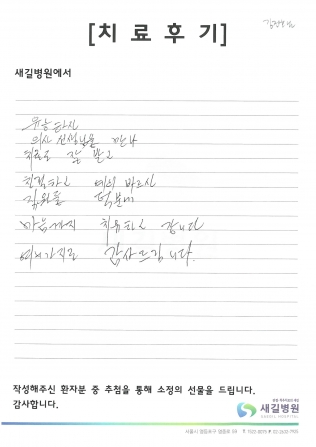 [치료후기]
새길병원에서
유능하신
의사 선생님을 만나
치료도 잘 받고
친절하고 예의 바르신
직원들 덕분에
마음까지 치유하고 갑니다
여러가지로 감사드립니다.
작성해주신 환자분 중 추첨을 통해 소정의 선물을 드립니다.
감사합니다.
새길병원